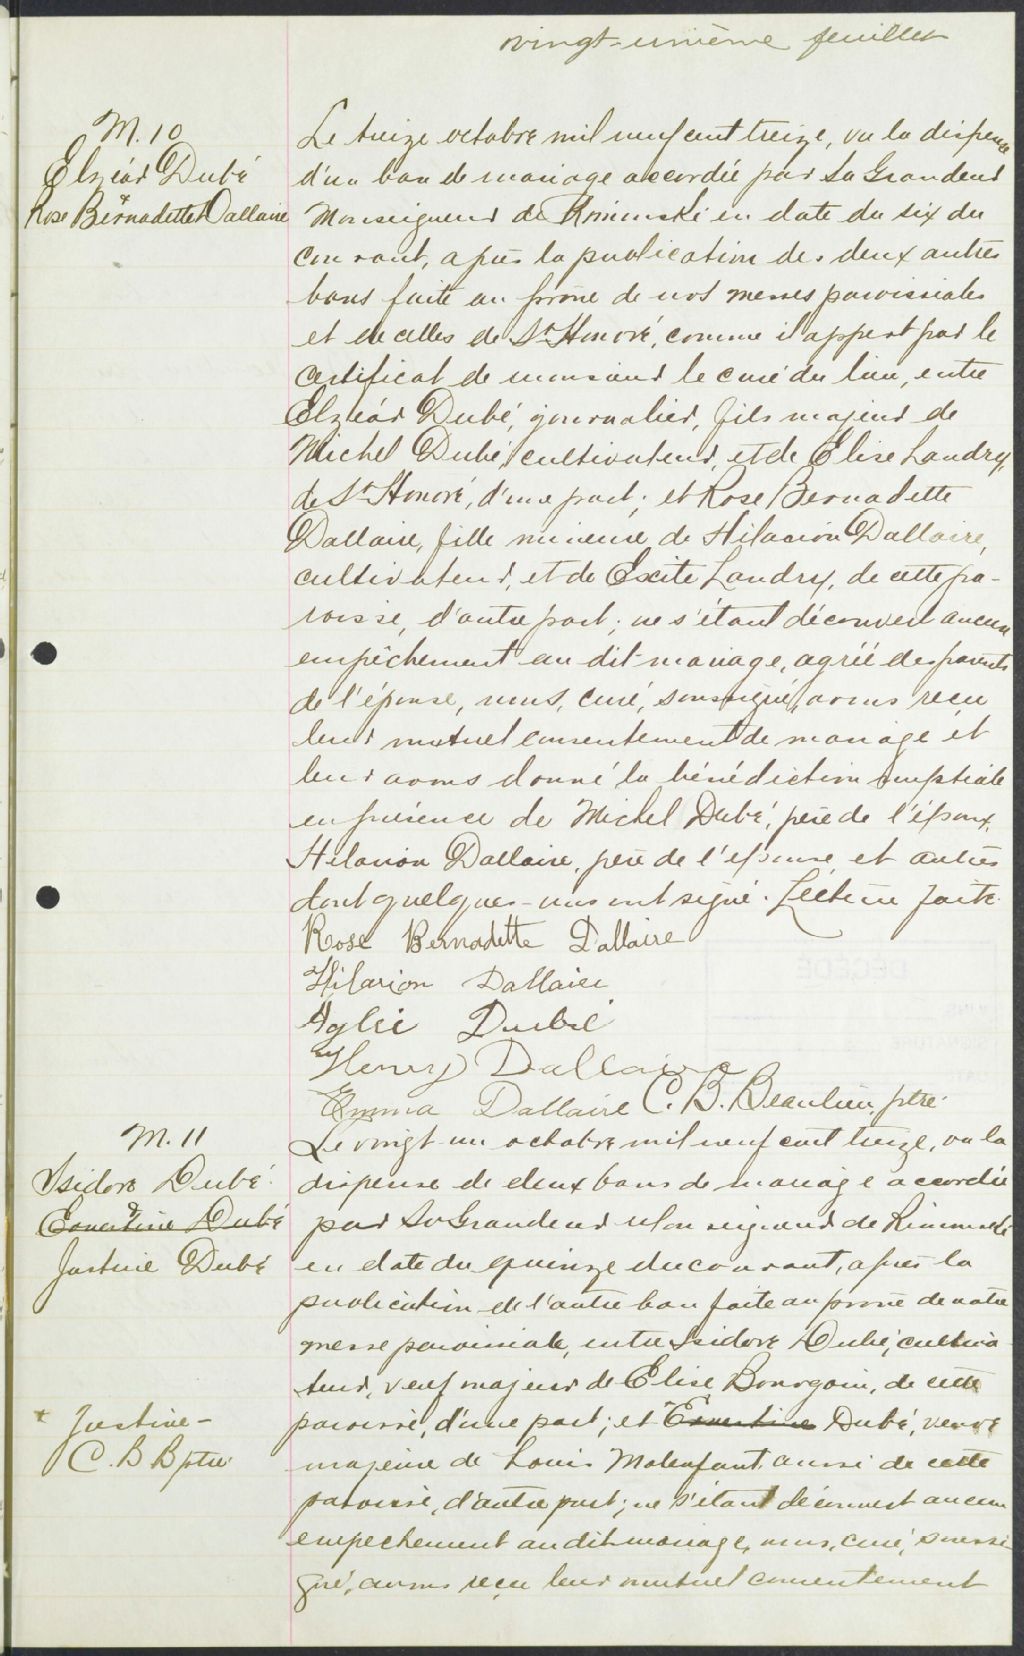 vingt-unième feuillet
M. 10
Elzéar Dubé
&
Rose Bernadette Dallaire
Le treize octobre mil neuf cent treize, vu la dispense
d'un ban de mariage accordée par Sa Grandeur
Monseigneur de Rimouski en date du six du
courant, après la publication des deux autres
bans faite au prône de nos messes paroissiales
et de celles de St Honoré, comme il appert par le
certificat de monsieur le curé du lieu, entre
Elzéar Dubé, journalier, fils majeur de
Michel Dubé, cultivateur, et de Elise Landry,
de St Honoré, d'une part; et Rose Bernadette
Dallaire, fille mineure de Hilarion Dallaire,
cultivateur, et de Exite Landry, de cette pa-
roisse, d'autre part; ne s'étant découvert aucun
empêchement au dit mariage, agréé des parents
de l'épouse, nous, curé, soussigné, avons reçu
leur mutuel consentement de mariage et
leur avons donné la bénédiction nuptiale
en présence de Michel Dubé, père de l'époux,
Hilarion Dallaire, père de l'épouse et autres
dont quelques-uns ont signé. Lecture faite.
Rose Bernadette Dallaire
Hilarion Dallaire
Aglée Dubé
Henry Dallaire
Emma Dallaire C. B. Beaulieu, ptre.
M. 11
Isidore Dubé
&
Ernestine Dubé
Justine Dubé
Le vingt-un octobre mil neuf cent treize, vu la
dispense de deux bans de mariage accordée
par Sa Grandeur Monseigneur de Rimouski
en date du quinze du courant, après la
publication de l'autre ban faite au prône de notre
messe paroissiale, entre Isidore Dubé, cultiva-
teur, veuf majeur de Elise Bourgoin, de cette
paroisse, d'une part; et Ernestine Dubé, veuve
+ Justine -
C. B B ptre.
majeure de Louis Malenfant, aussi de cette
paroisse, d'autre part; ne s'étant découvert aucun
empêchement au dit mariage, nous, curé, soussi-
gné, avons reçu leur mutuel consentement